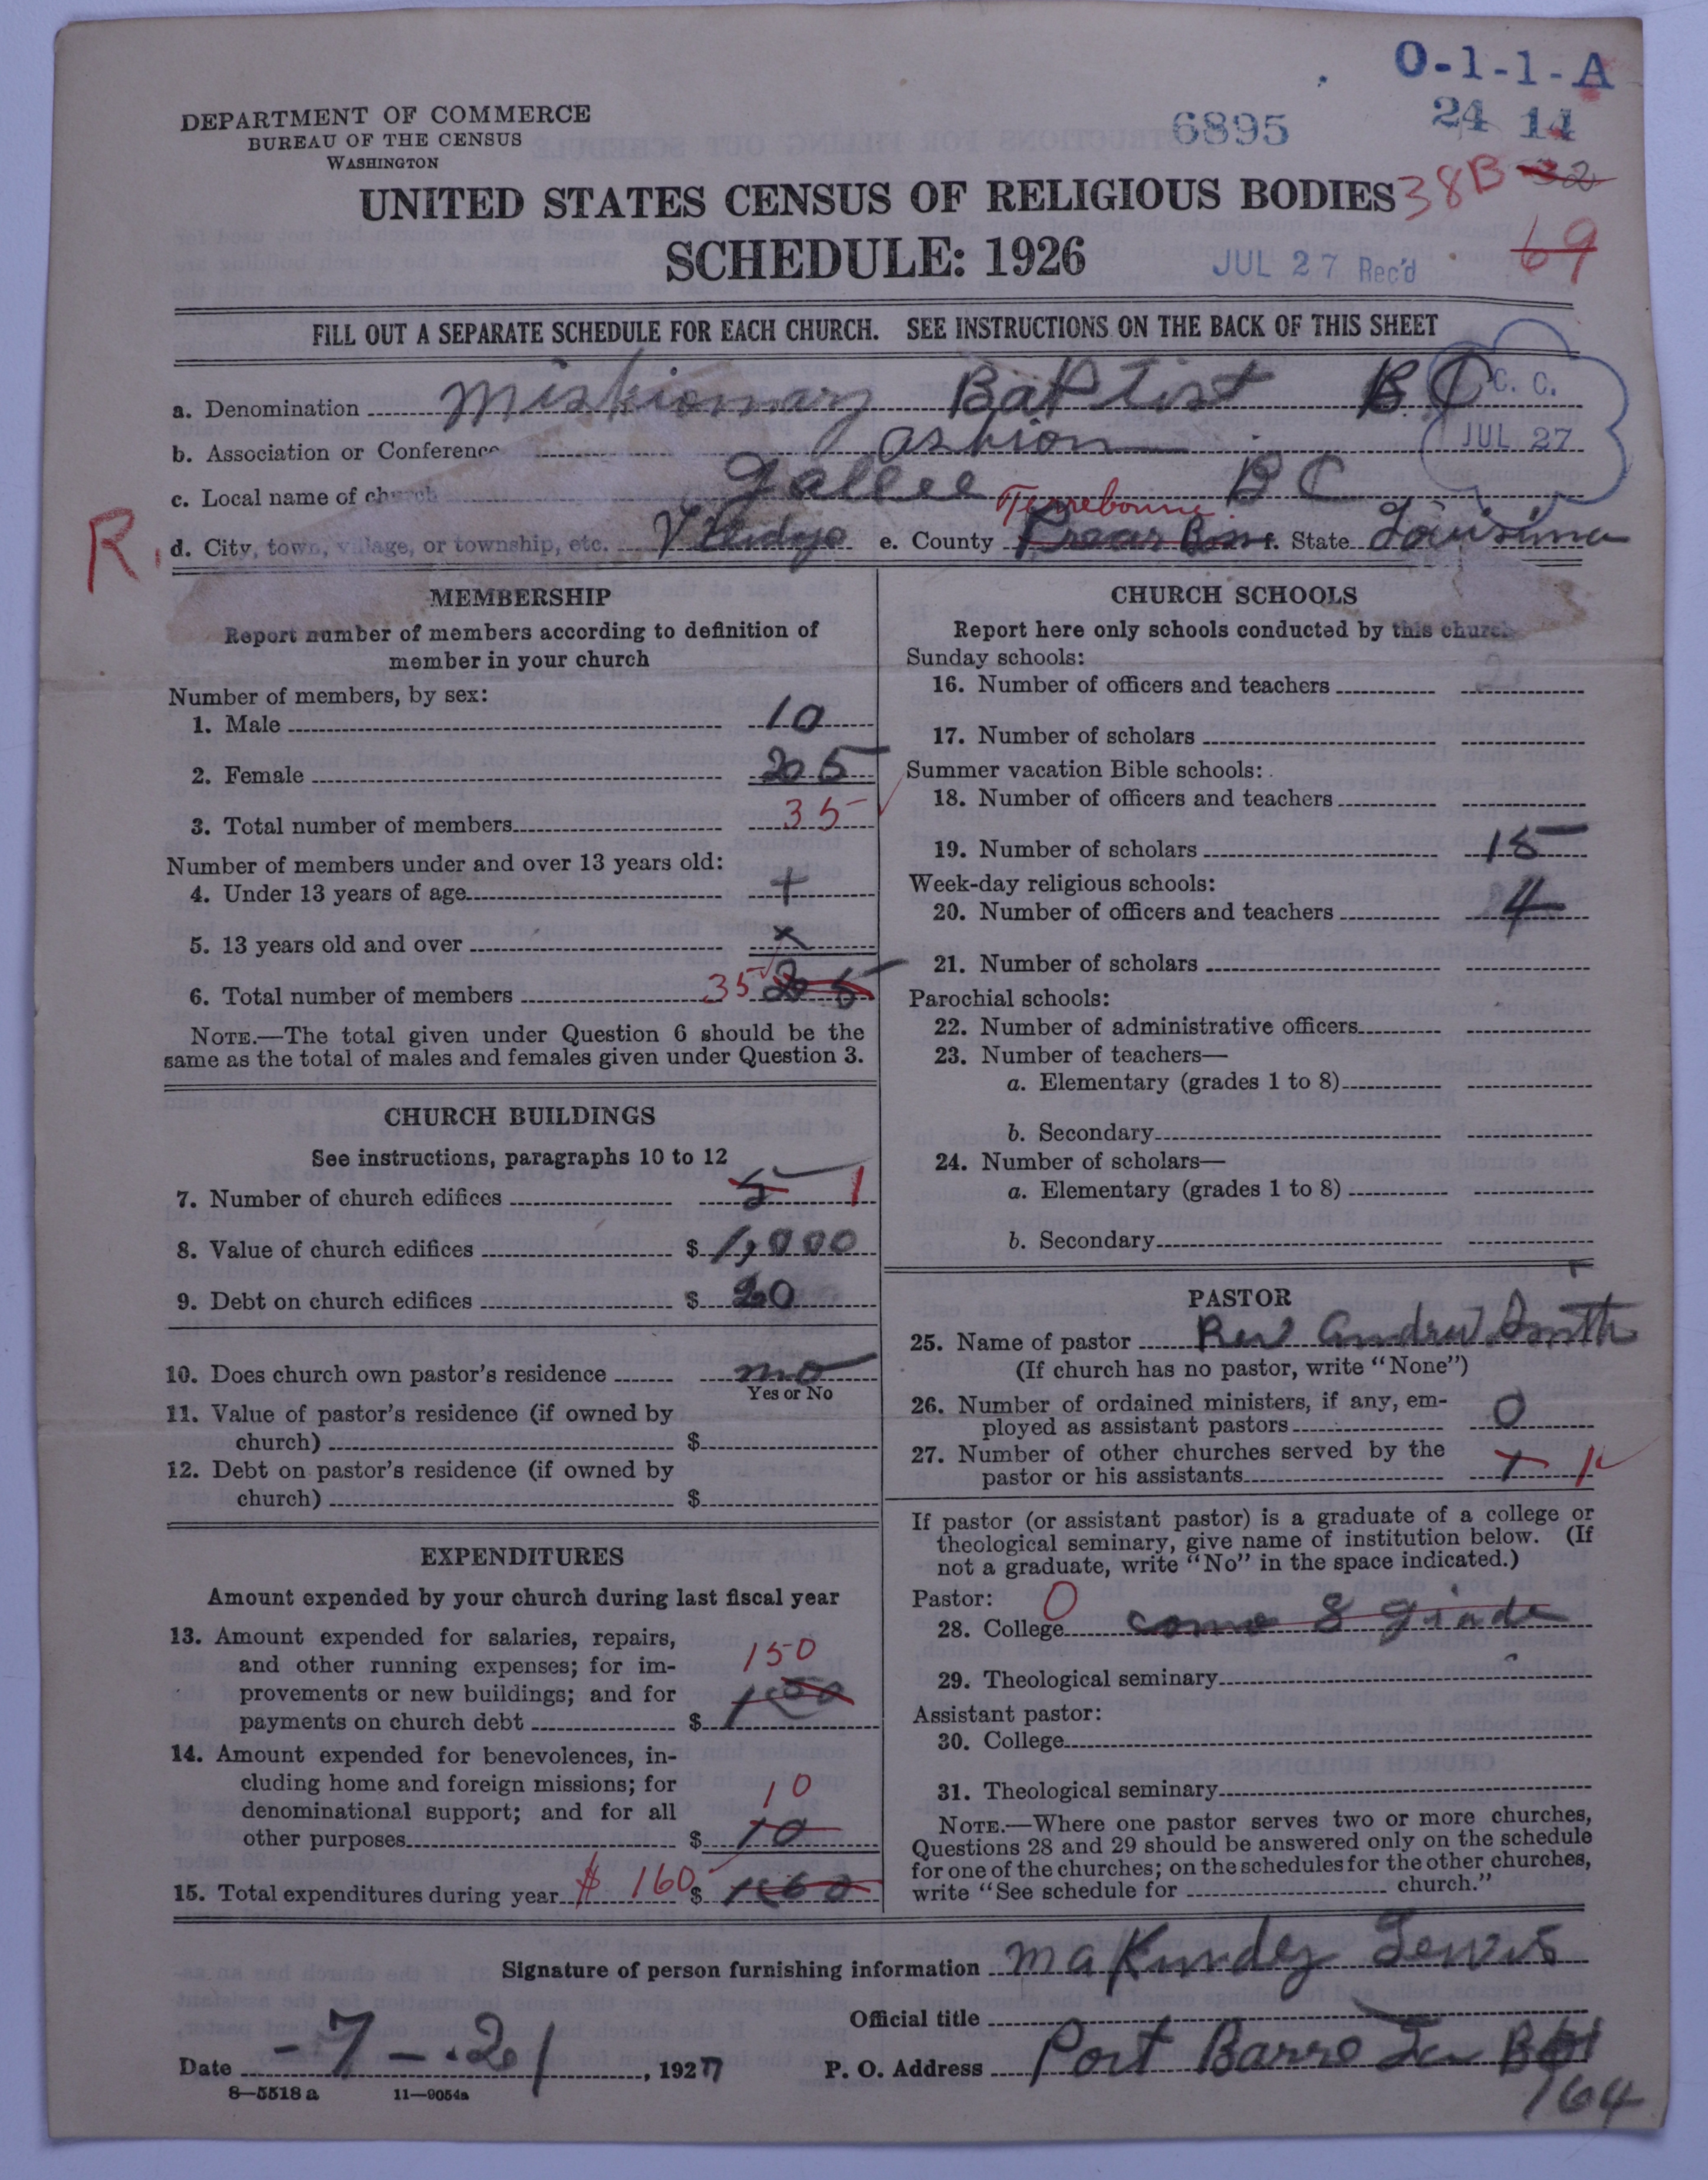 O-1-1-A
DEPARTMENT OF COMMERCE
BUREAU OF THE CENSUS
WASHINGTON
6895
24 14
UNITED STATES CENSUS OF RELIGIOUS BODIES
38B 32
SCHEDULE: 1926
JUL 27 Rec'd
69
FILL OUT A SEPARATE SCHEDULE FOR EACH CHURCH. SEE INSTRUCTIONS ON THE BACK OF THIS SHEET
a. Denomination Missionary Baptist B C
C. C.
JUL 27
b. Association or Conference ashion
c. Local name of church Gallee B C
R.
d. City, town, village, or township, etc. e. County Terrebonne f. State Louisina
MEMBERSHIP
Report number of members according to definition of
member in your church
Number of members, by sex:
1. Male 10
2. Female 25
3. Total number of members 35
Number of members under and over 13 years old:
4. Under 13 years of age +
5. 13 years old and over x
6. Total number of members 35 25
NOTE.—The total given under Question 6 should be the
same as the total of males and females given under Question 3.
CHURCH BUILDINGS
See instructions, paragraphs 10 to 12
7. Number of church edifices 5 1
8. Value of church edifices $ 1,000
9. Debt on church edifices $ 20
10. Does church own pastor's residence no
Yes or No
11. Value of pastor's residence (if owned by
church) $
12. Debt on pastor's residence (if owned by
church) $
EXPENDITURES
Amount expended by your church during last fiscal year
13. Amount expended for salaries, repairs,
and other running expenses; for im-
provements or new buildings; and for
payments on church debt $ 150
14. Amount expended for benevolences, in-
cluding home and foreign missions; for
denominational support; and for all
other purposes $ 10 10
15. Total expenditures during year $ 160 $
CHURCH SCHOOLS
Report here only schools conducted by this church
Sunday schools:
16. Number of officers and teachers 2
17. Number of scholars
Summer vacation Bible schools:
18. Number of officers and teachers
19. Number of scholars 15
Week-day religious schools:
20. Number of officers and teachers 4
21. Number of scholars
Parochial schools:
22. Number of administrative officers
23. Number of teachers—
a. Elementary (grades 1 to 8)
b. Secondary
24. Number of scholars—
a. Elementary (grades 1 to 8)
b. Secondary
PASTOR
25. Name of pastor Rev Andrew Smith
(If church has no pastor, write "None")
26. Number of ordained ministers, if any, em-
ployed as assistant pastors 0
27. Number of other churches served by the
pastor or his assistants 1 1
If pastor (or assistant pastor) is a graduate of a college or
theological seminary, give name of institution below. (If
not a graduate, write "No" in the space indicated.)
Pastor: 0
28. College 8 grade
29. Theological seminary
Assistant pastor:
30. College
31. Theological seminary
NOTE.—Where one pastor serves two or more churches,
Questions 28 and 29 should be answered only on the schedule
for one of the churches; on the schedules for the other churches,
write "See schedule for church."
Signature of person furnishing information Lewis
Official title
Date -7-21, 1927 P. O. Address Port Barre La
164
8—5518 a 11—9054a